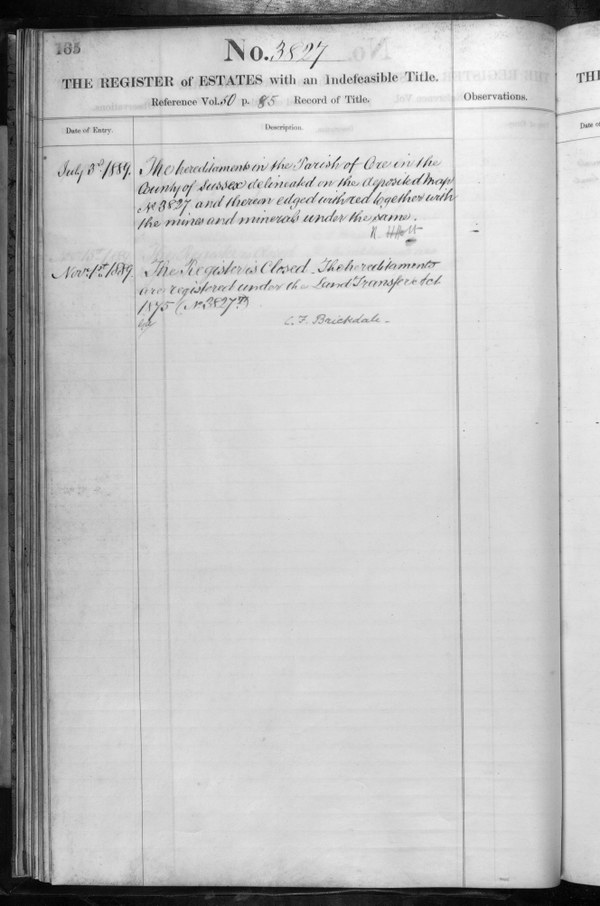 165
No. 3827
THE REGISTER of ESTATES with an Indefeasible Title.
Reference Vol. 50 p. 85 Record of Title.
Observations.
Date of Entry.
Description.
July 3rd 1889. The hereditaments in the Parish of Ore in the
County of Sussex delineated on the deposited Map
No 3827 and thereon edged with red together with
the mines and minerals under the same.
Novr. 1st 1889 The Register is Closed. The hereditaments
are registered under the Land Transfer Act
1875 (No 3827
C. F. Brickdale
THE
Date of